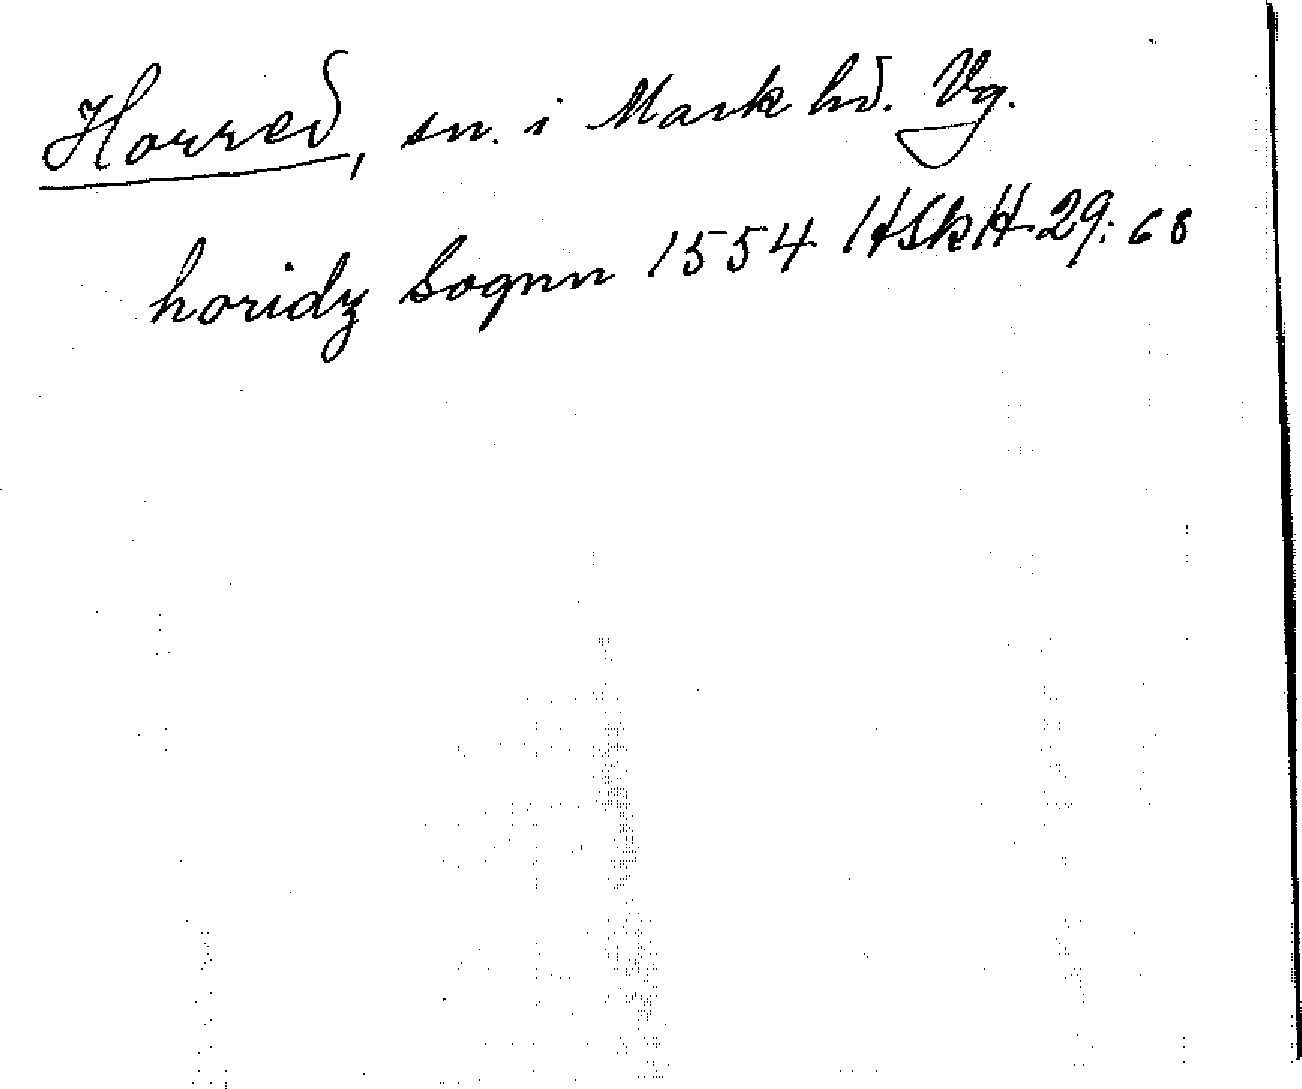 Horred, sn. i Mark hd. Vg.
horidz Sognn 1554 HSkH 29:68